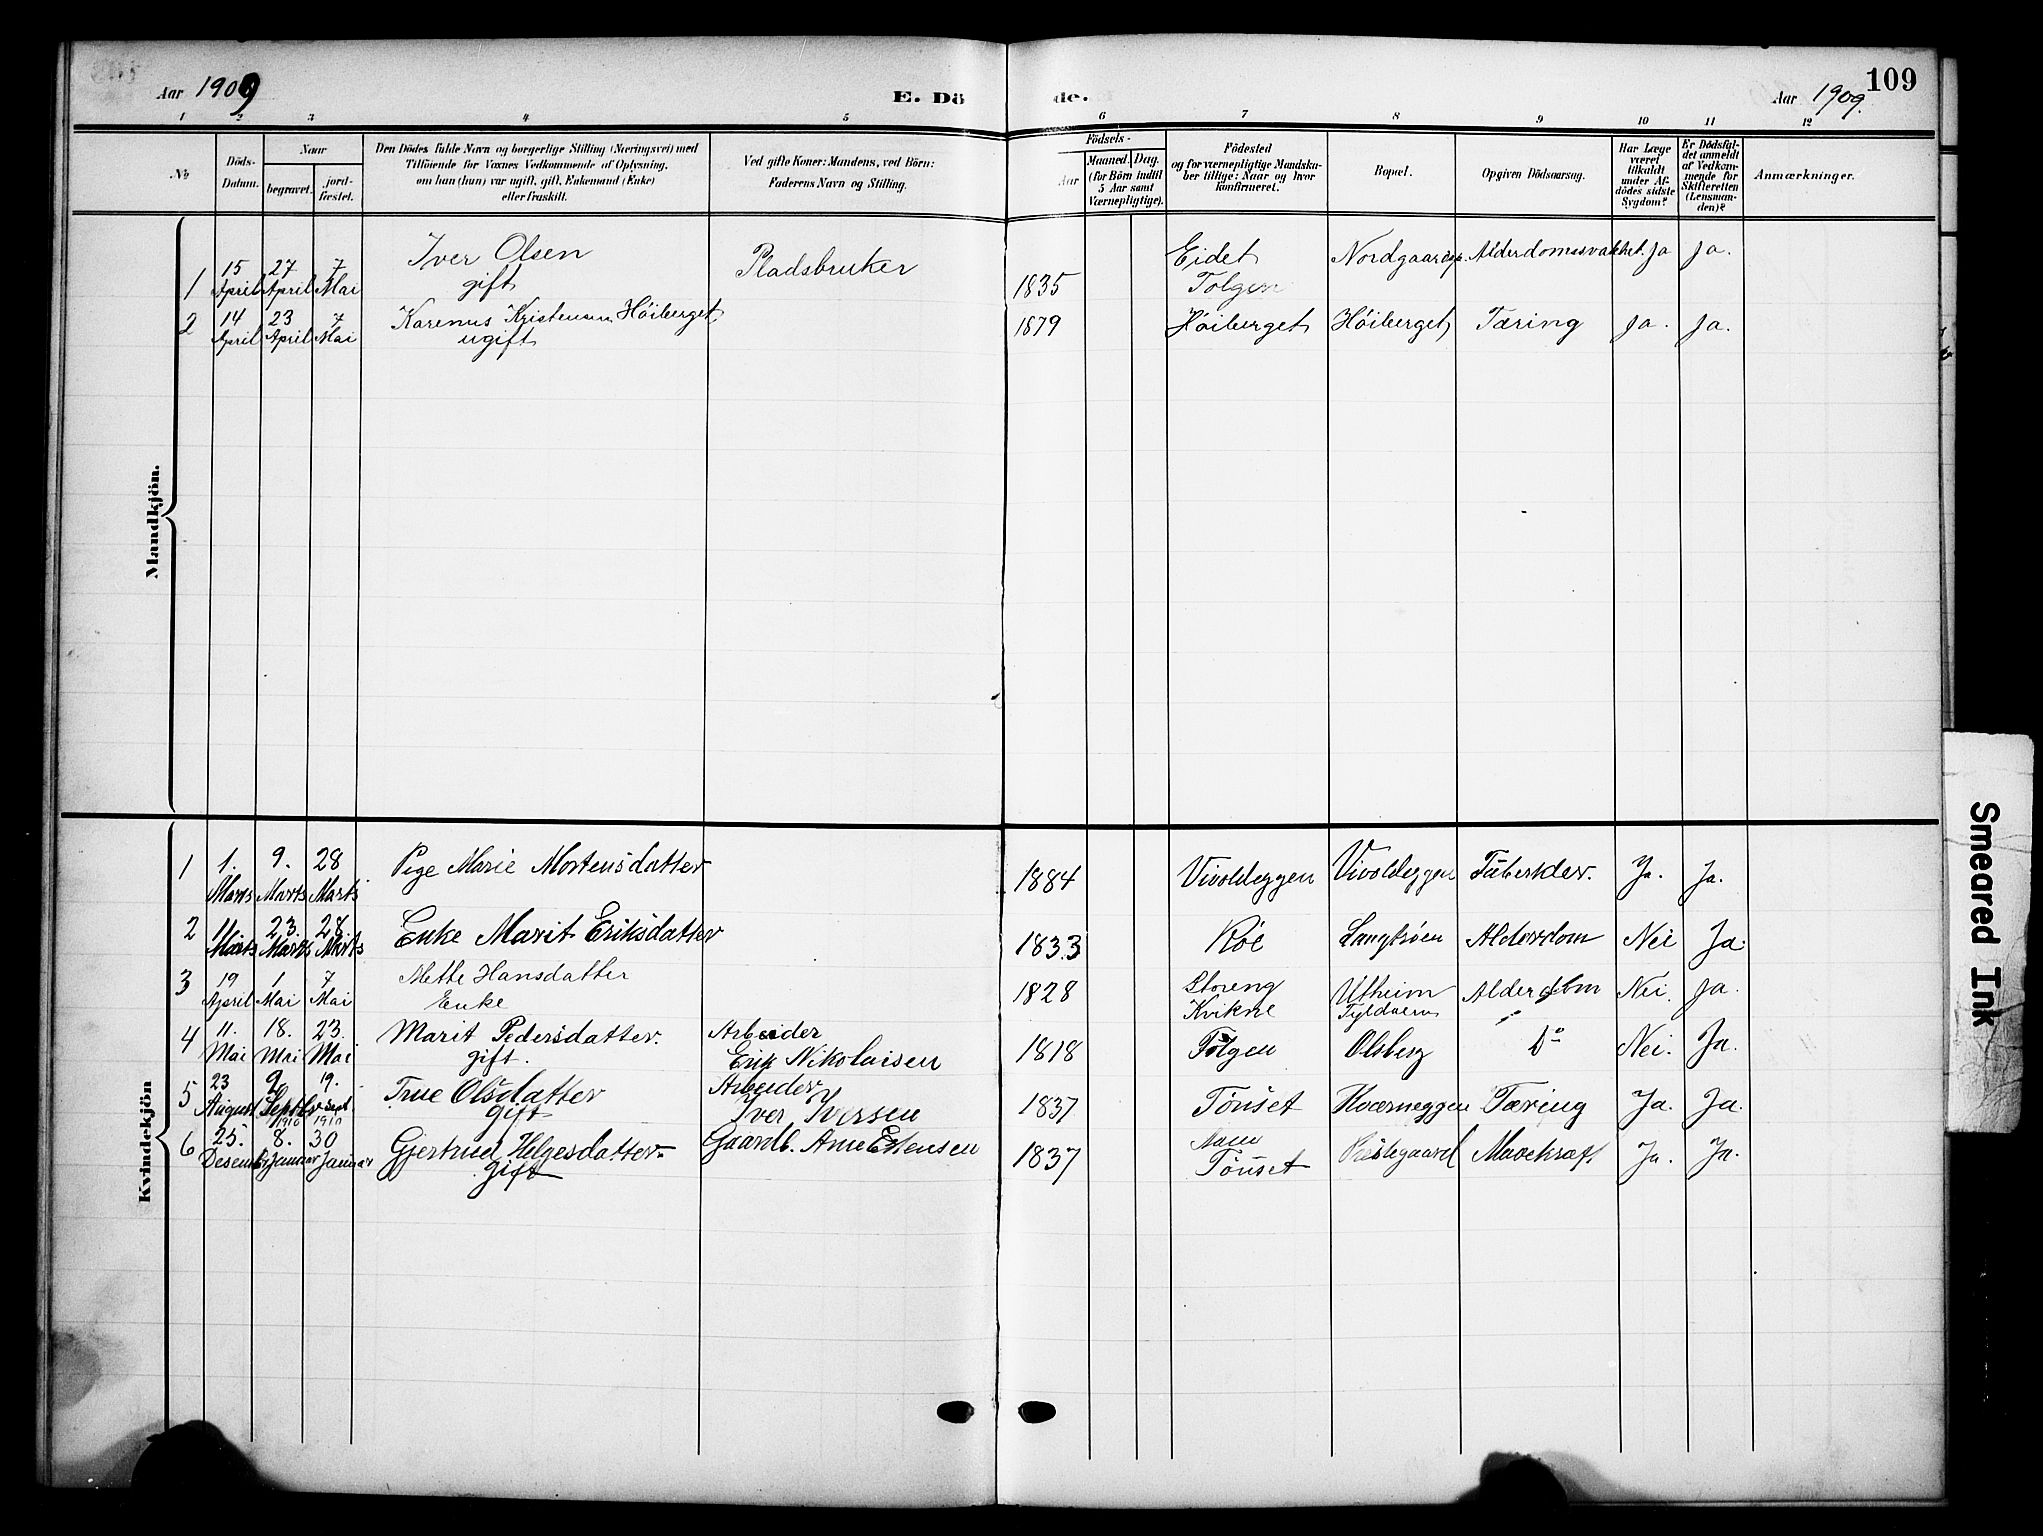 Aar 1909 E. Dö de. Aar 1909. 109
1 2 3 4 5 6 7 8 9 10 11 12
No
Döds-
Datum.
Naar
begravet.
jord-
fæstet.
Den Dödes fulde Navn og borgerlige Stilling (Næringsvei) med
Tilföiende for Voxnes Vedkommende af Oplysning,
om han (hun) var ugift, gift, Enkemand (Enke)
eller fraskilt.
Ved gifte Koner: Mandens, ved Börn:
Faderens Navn og Stilling.
Födsels-
Aar
Maaned. Dag.
(for Börn indtil
5 Aar samt
Værnepligtige).
Födested
og for værnepligtige Mandska-
ber tillige: Naar og hvor
konfirmeret.
Bopæl.
Opgiven Dödsaarsag.
Har Læge
været
tilkaldt
under Af-
dödes sidste
Sygdom?
Er Dödsfal-
det anmeldt
af Vedkom-
mende for
Skifteretten
(Lensman-
den)?
Anmærkninger.
Mandkjön.
1 15 April 27 April 7 Mai Iver Olsen gift Pladsbruker 1835 Eidet Tolgen Alderdomssvakhet. Ja Ja.
2 14 April 23 April 7 Mai Karenus Kristensen Höiberget ugift 1879 Höiberget Höiberget Tæring Ja. Ja.
Kvindekjön
1 1. Marts 9. Marts 28 Marts Pige Marie Mortensdatter 1884 Vivoldeggen Vivoldeggen Ja. Ja.
2 11. Marts 23. Marts 28. Marts Enke Marit Eriksdatter 1833 Röe Langtröen Alderdom Nei Ja.
3 19 April 1 Mai 7 Mai Mette Hansdatter Enke 1828 Storeng Kvikne Utheim Alderdom Nei. Ja.
4 11. Mai 18. Mai 23. Mai Marit Pedersdatter. gift. Arbeider Erik Nikolaisen 1818 Tolgen Olsberg Do Nei. Ja.
5 23 August 2 Septbr 1910 19. Sept. 1910 Olsdatter Gift Arbeider Iver Iversen 1837 Tönset Kværneggen Tæring Ja. Ja.
6 25. Desemb 8. Januar 30 Januar Gjertrud Helgesdatter. Gift Gaardb. Arne Estensen 1837 Tönset Mavekræft Ja. Ja.
Smeared Ink